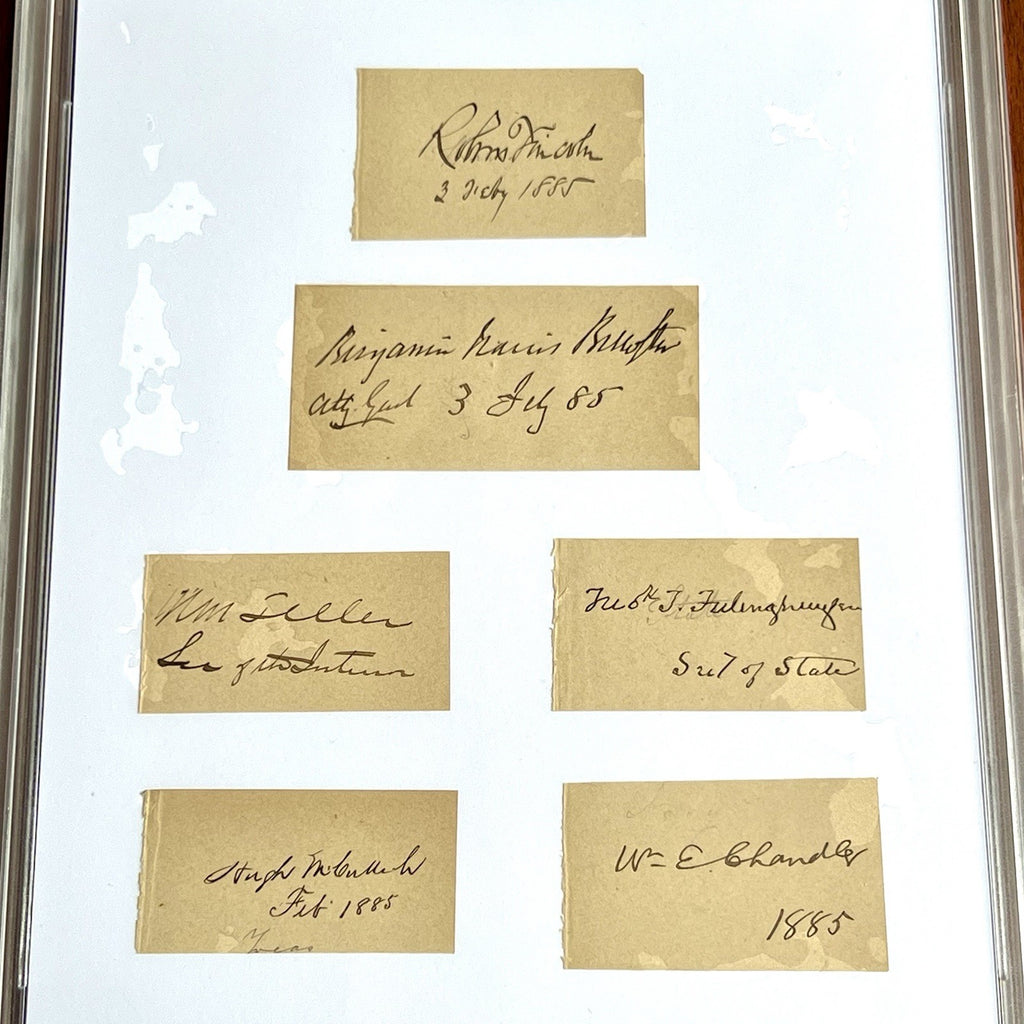 Robt T Lincoln
3 Feby 1885
Benjamin Harris Brewster
Atty Genl 3 Feby 85
H M Teller
Sec of the Interior
Fredk T. Frelinghuysen
Secy of State
Hugh McCulloch
Feb 1885
Treas
Wm E. Chandler
1885